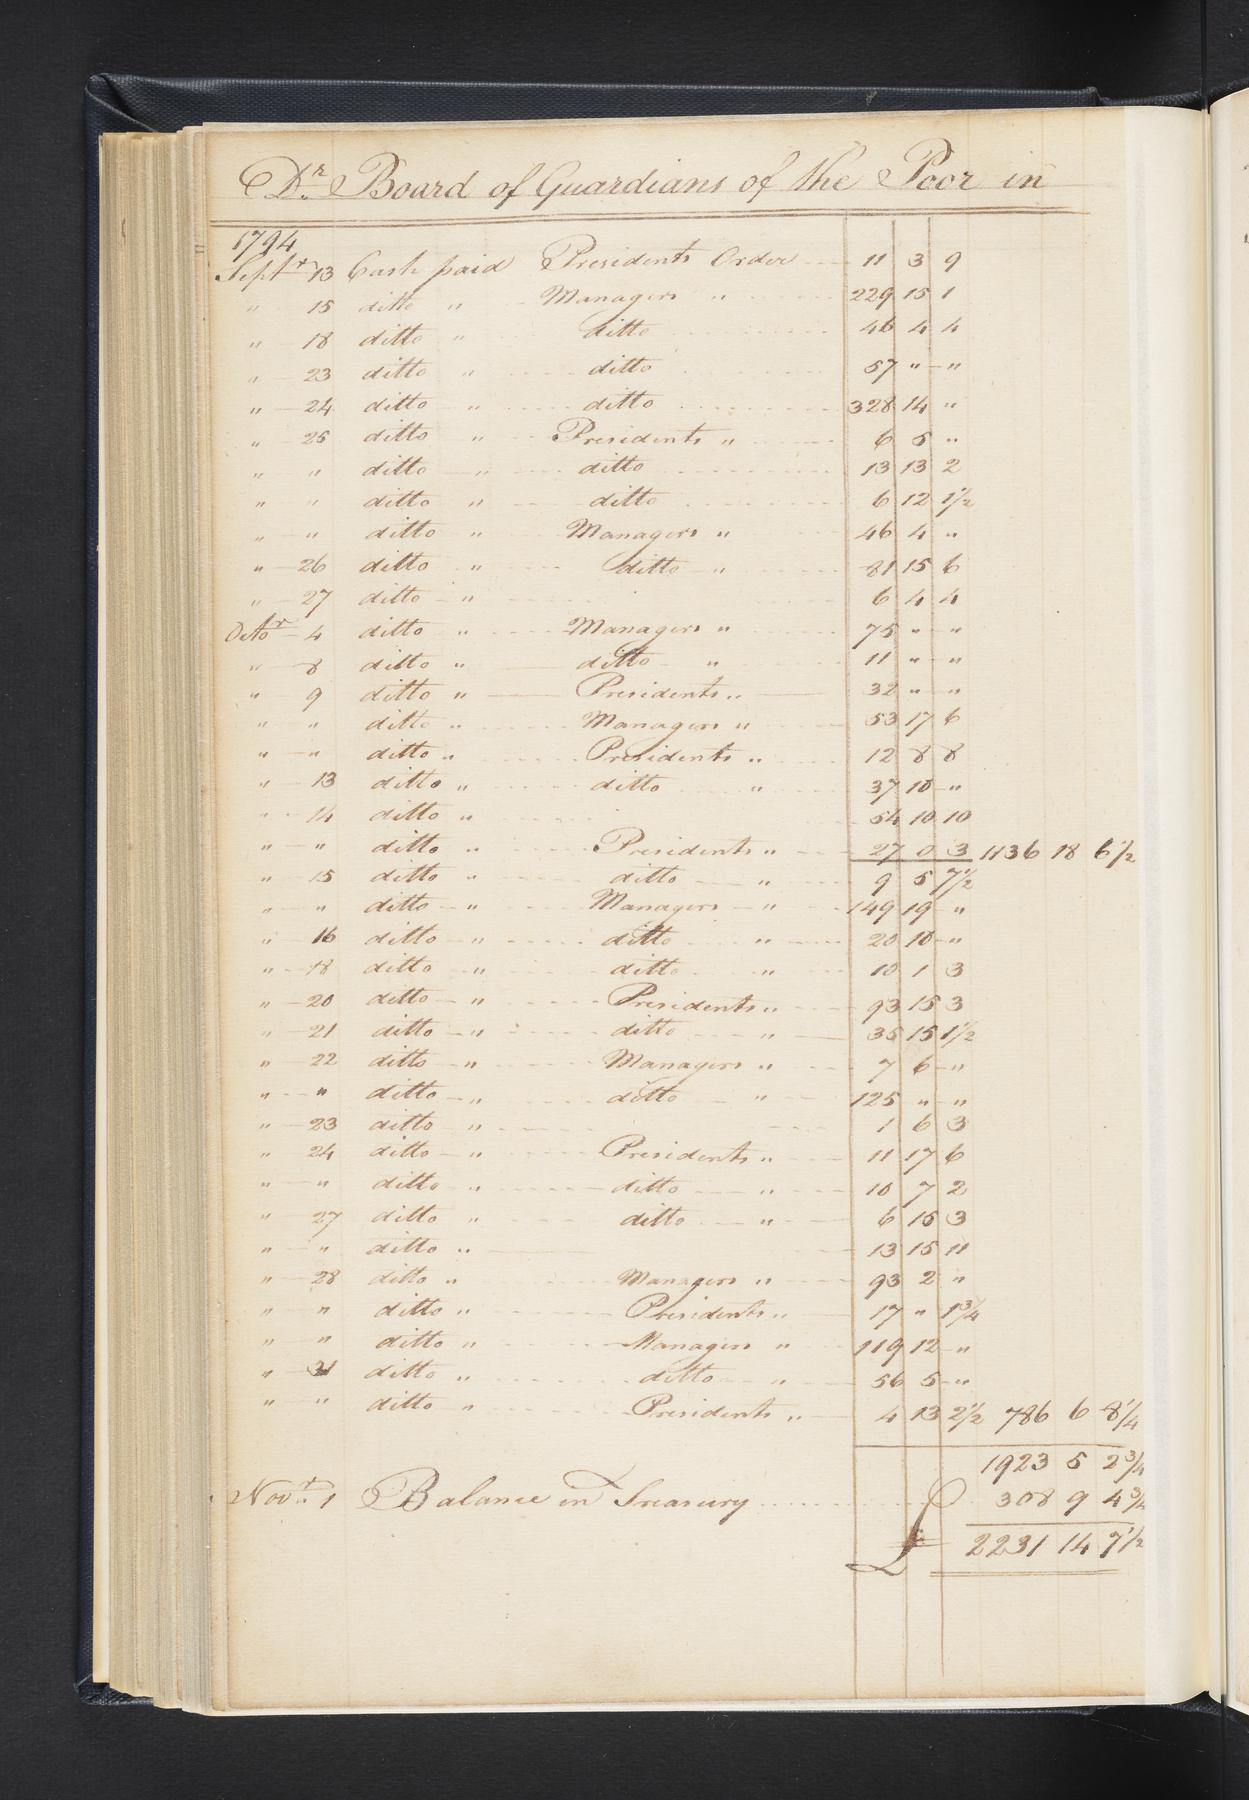 Dr. Board of Guardians of the Poor in
1794
Septr 13 Cash paid Presidents Order 11 3 9
" 15 ditto " Managers " 229 15 1
" 18 ditto " ditto 46 4 4
" 23 ditto " ditto 57 " "
" 24 ditto " ditto 328 14 "
" 25 ditto " Presidents " 6 5 "
" " ditto " ditto 13 13 2
" " ditto " ditto 6 12 1½
" " ditto " Managers " 46 4 "
" 26 ditto " ditto " 81 15 6
" 27 ditto " 6 4 4
Octor 4 ditto " Managers " 75 " "
" 8 ditto " ditto " 11 " "
" 9 ditto " Presidents " 32 " "
" " ditto " Managers " 53 17 6
" " ditto " Presidents " 12 8 8
" 13 ditto " ditto " 37 10 "
" 14 ditto " 54 10 10
" " ditto " Presidents " 27 0 3 1136 18 6½
" 15 ditto " ditto " 9 5 7½
" " ditto " Managers " 149 19 "
" 16 ditto " ditto " 20 10 "
" 18 ditto " ditto " 10 1 3
" 20 ditto " Presidents " 93 15 3
" 21 ditto " ditto " 35 15 1½
" 22 ditto " Managers " 7 6 "
" " ditto " ditto " 125 " "
" 23 ditto " 1 6 3
" 24 ditto " Presidents " 11 17 6
" " ditto " ditto " 10 7 2
" 27 ditto " ditto " 6 15 3
" " ditto " 13 15 11
" 28 ditto " Managers " 93 2 "
" " ditto " Presidents " 17 " 1¾
" " ditto " Managers " 119 12 "
" 31 ditto " ditto " 56 5 "
" " ditto " Presidents " 4 13 2½ 786 6 8¼
1923 5 2¾
Novr. 1 Balance in Treasury 308 9 4¾
£ 2231 14 7½